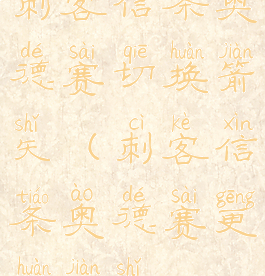 刺客信条奥
dé sài qiē huàn jiàn
德赛切换箭
shǐ cì kè xìn
矢（刺客信
tiáo ào dé sài gēng
条奥德赛更
huàn jiàn shǐ